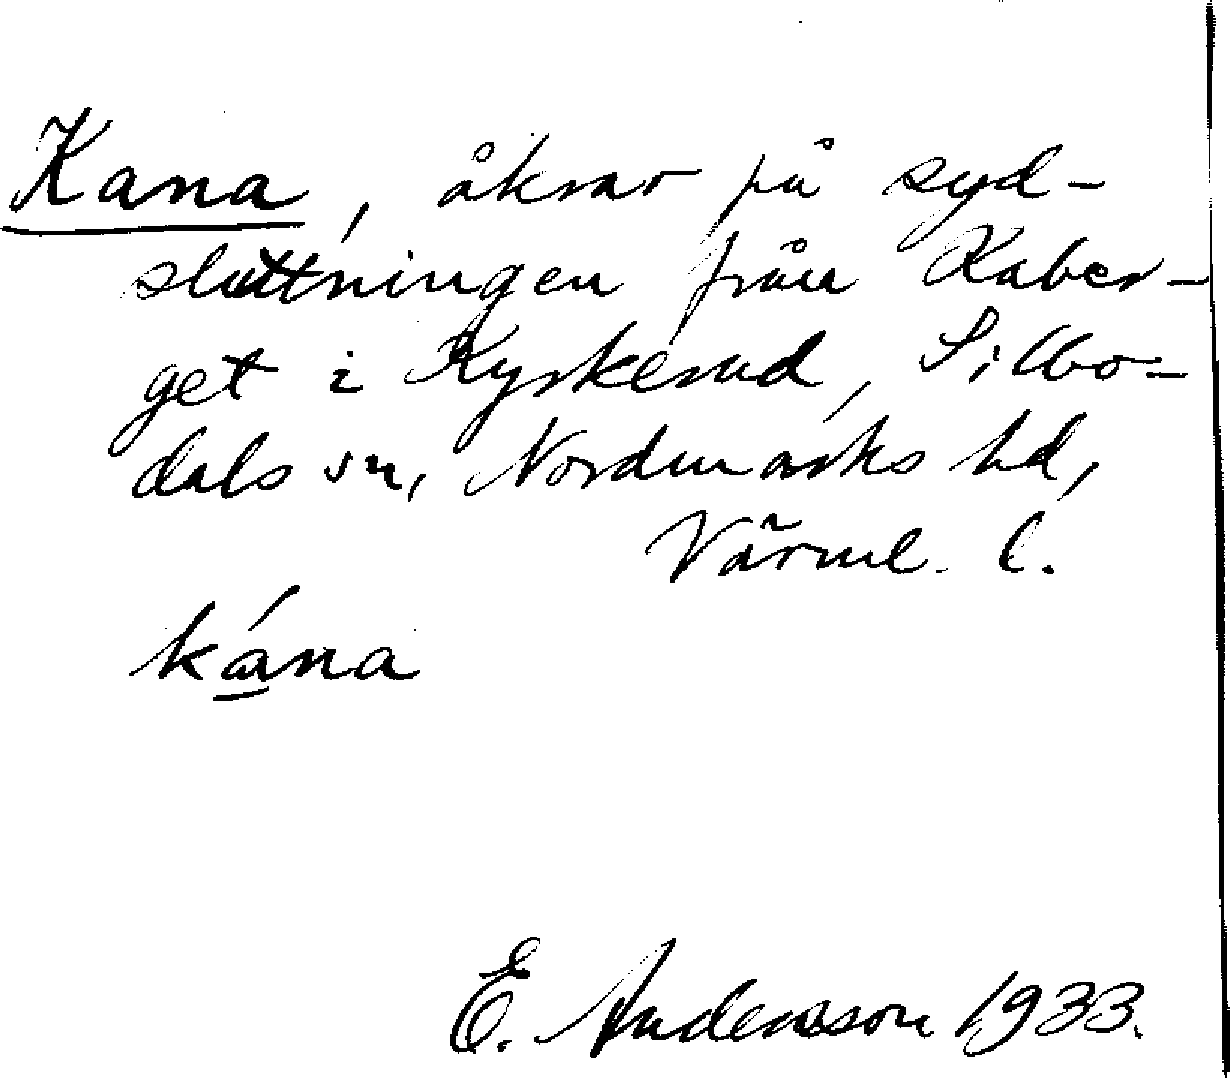 Kana, åkrar på syd-
sluttningen från Kaber-
get i Kyrkerud, Sillbo-
dals sn, Nordmarks hd,
Värml. l.
kána
E. Andersson 1933.